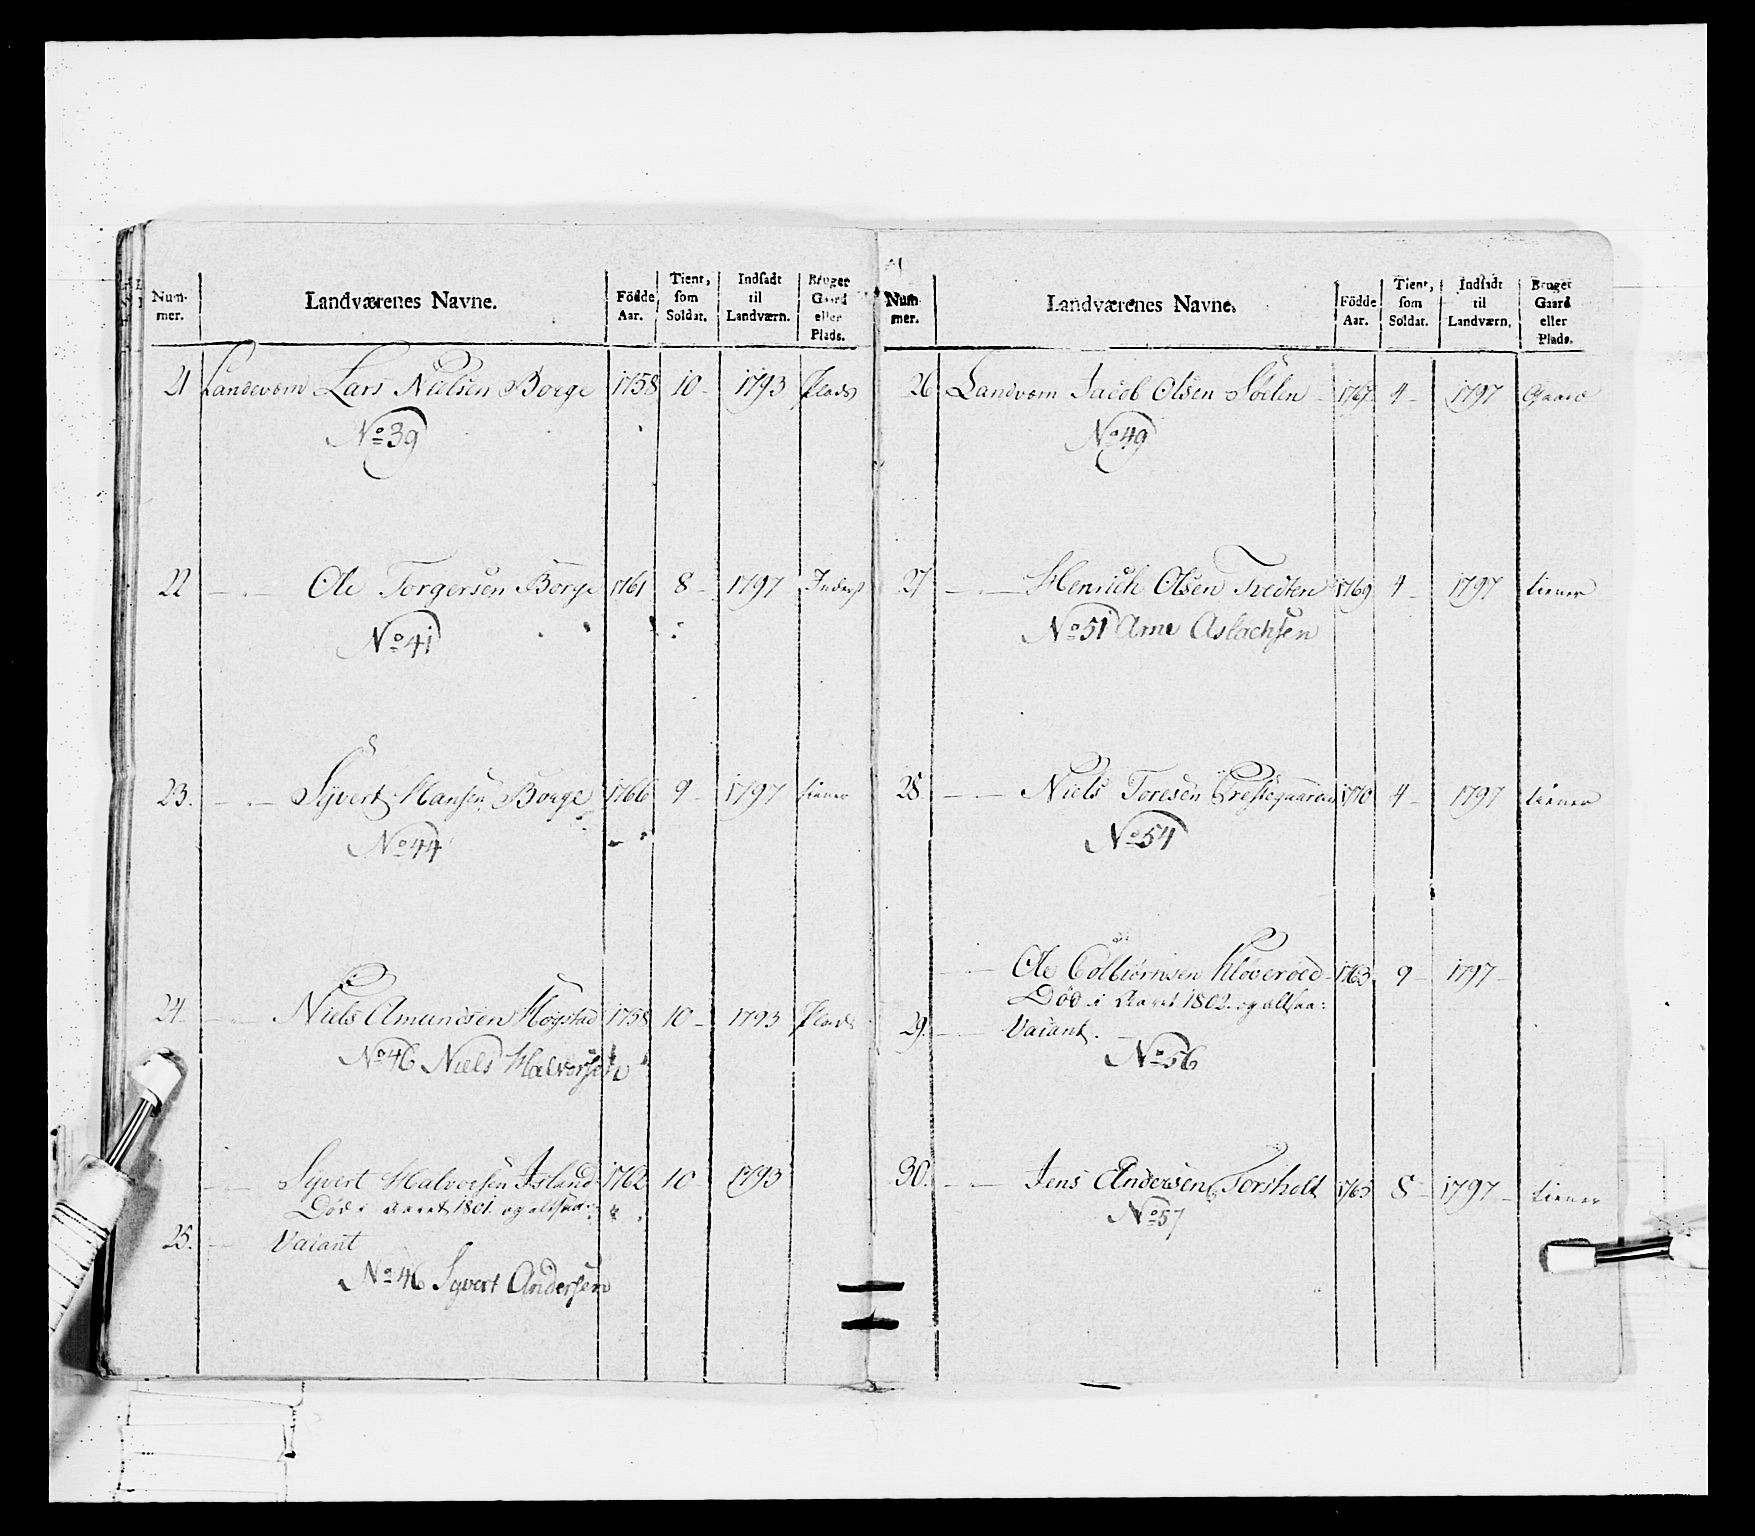 Num-
mer.
Landværenes Navne.
Födde
Aar.
Tient,
som
Soldat.
Indsadt
til
Landværn.
Bruger
Gaard
eller
Plads.
21 Landeværn Lars Nielsen Borge 1758 10 - 1793 Plads
No 39
22 — — Ole Torgersen Borge 1761 8 - 1797 Inderst
No 41
23. — — Syvert Hansen Borge 1766 9 - 1797 tiener
No 44
24 — Niels Amundsen Høgstad 1758 10 - 1793 Plads
No 46 Niels Halvorsen
— Syvert Halvorsen Island 1762 10 1793
Død i Aaret 1801. og altsaa:
25. — Vacant
No 46 Syvert Andersen
Num-
mer.
Landværenes Navne.
Födde
Aar.
Tient,
som
Soldat.
Indsadt
til
Landværn.
Bruger
Gaard
eller
Plads.
26 Landværn Jacob Olsen 1767 4 - 1797 Gaard
No 49
27 — — Henrich Olsen Tvedten 1769 4 - 1797 tiener
No 51 Arne Aslachsen
28 — — Niels Toresen Prestegaarden 1770 4 - 1797 tiener
No 54
— Ole Colbiørnsen Kloverød 1763 9 - 1797 -
Død i Aaret 1802. og altsaa:
29. — Vacant.
No 56
30. — — Jens Andersen Torsholt 1765 8 - 1797 - tiener
No 57